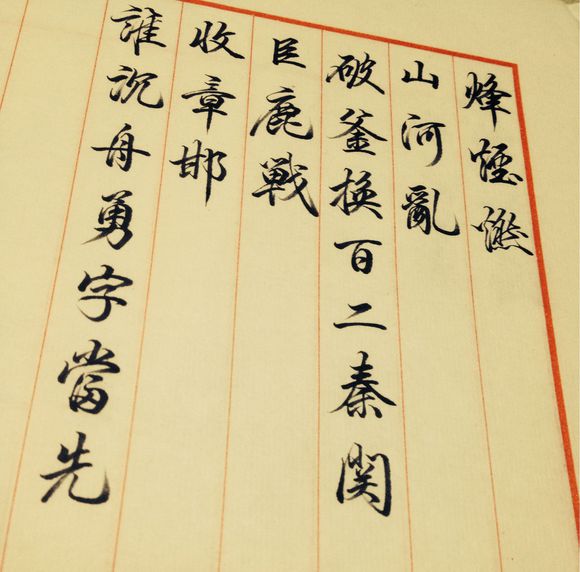 烽煙燃
山河亂
破釜換百二秦関
巨鹿戦
收章邯
誰沉舟勇字當先